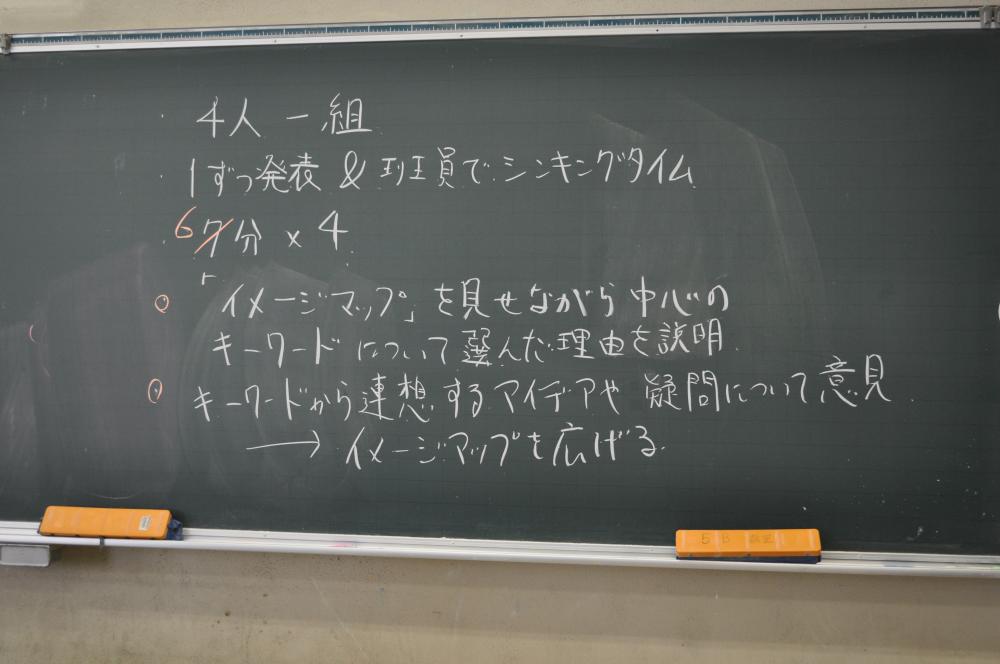 ・4人一組
・1ずつ発表 & 班員でシンキングタイム
・6 7分 × 4
「イメージマップ」を見せながら中心の
キーワードについて選んだ理由を説明
キーワードから連想するアイデアや疑問について意見
→ イメージマップを広げる
5